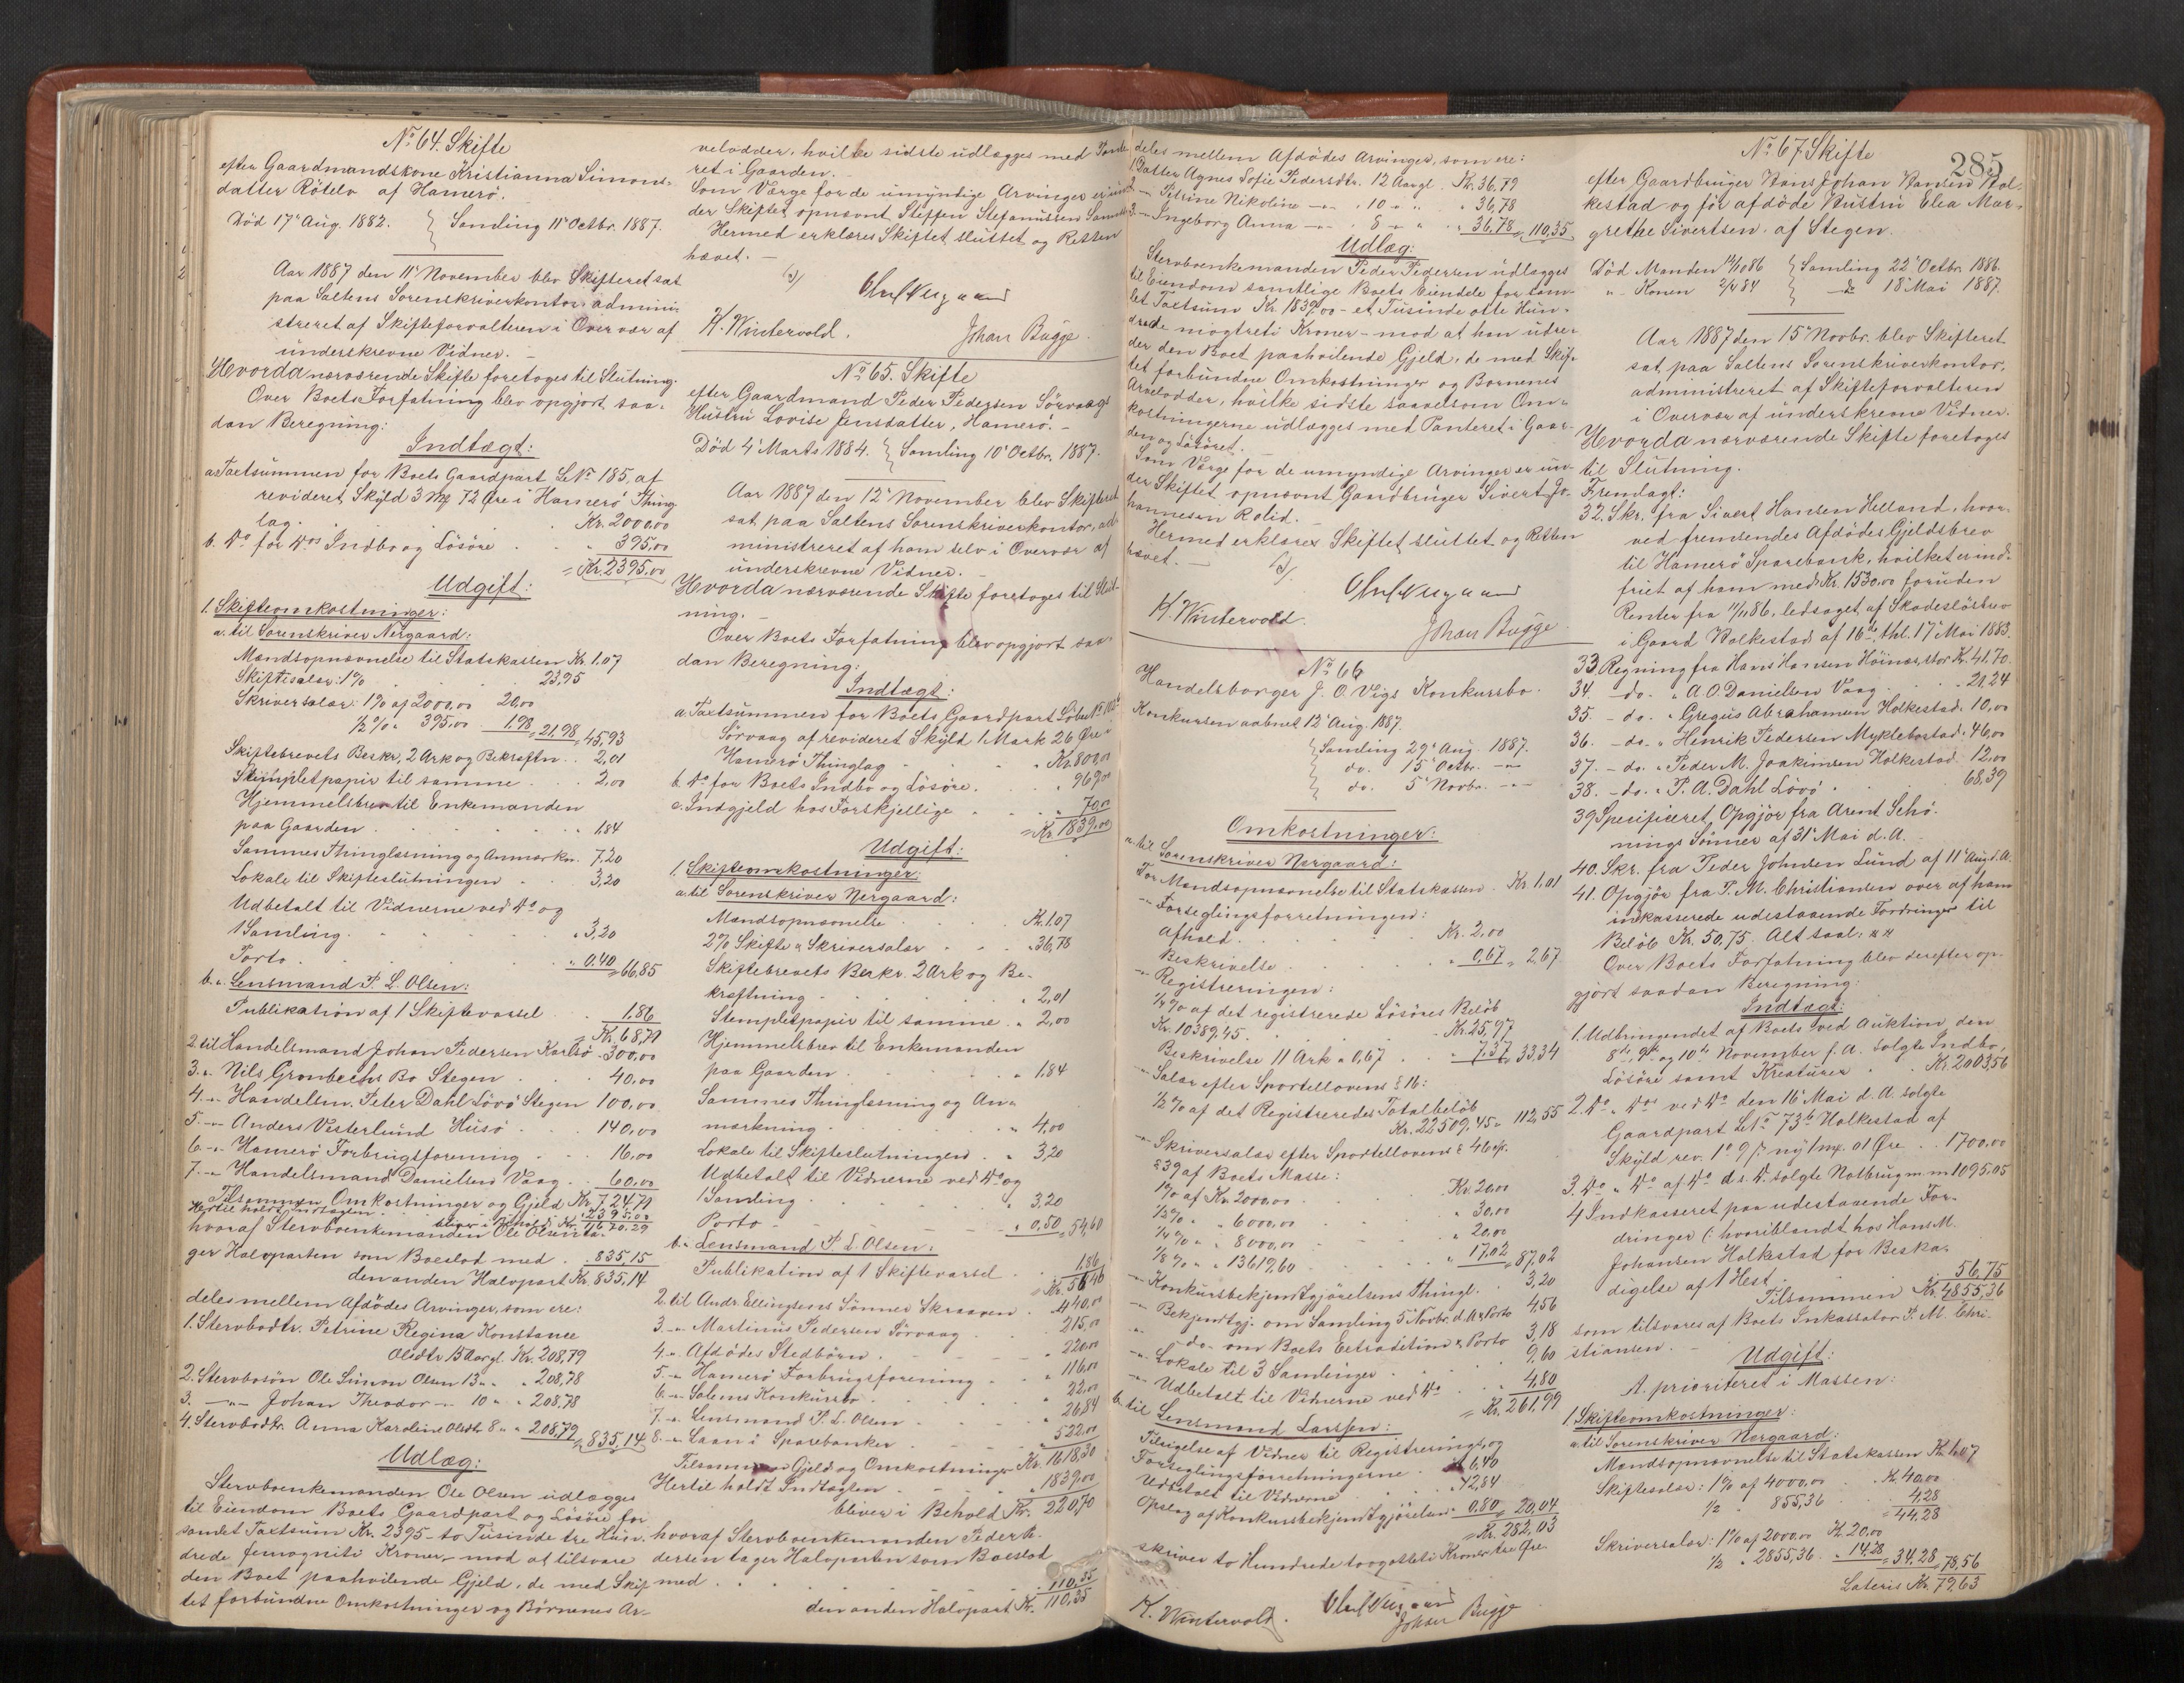 No 64. Skifte
efter Gaardmandskone Kristianna Simons-
datter Rötelv af Hamerö.
Död 17' Aug. 1882. } Samling 11' Octbr. 1887.
Aar 1887 den 11' November blev Skifteret sat
paa Saltens Sorenskriverkontor, admini-
streret af Skifteforvalteren i Overvær af
underskrevne Vidner. –
Hvorda nærværende Skifte foretoges til Slutning.
Over Boets Forfatning blev opgjort saa-
dan Beregning:
Indtægt:
a. Taxtsummen for Boets Gaardpart LNo 185, af
revideret Skyld 3 Mk 72 Øre i Hamerö Thing
lag. Kr. 2000,00
b. Do for Dos Indbo og Lösöre . . " 395,00
= Kr. 2395,00
Udgift:
1. Skifteomkostninger:
a. til Sorenskriver Nergaard:
Mandsopnævnelse til Statskassen Kr. 1,07
Skiftesalær: 1% . . . 23,95
Skriversalær: 1% af 2000,00 20,00
½ % " 395,00 1,98 = 21,98 = 45,93
Skiftebrevets Beskr., 2 Ark og Bekræftn. . 2,01
Stempletpapir til samme . . . 2,00
Hjemmelsbrev til Enkemanden
paa Gaarden . . . . . " 1,84
Sammes Thinglæsning og Anmærkn. 7,20
Lokale til Skifteslutningen . . 3,20
Udbetalt til Vidnerne ved Do og
1 Samling. . . . . " 3,20
Porto . . . . . " 0,40 = 66,85
b. " Lensmand P. L. Olsen:
Publikation af 1 Skiftevarsel . 1,86
= Kr. 68,71
2. til Handelsmand Johan Pedersen Karlsö - 300,00
3. " Nils Grönbechs Bo Stegen . . . 40,00
4. -" Handelsm. Peter Dahl Lövö Stegen 100,00
5. -" Anders Vesterlund Husö . . 140,00
6. -" Hamerö Forbrugsforening . . . 16,00
7. -" Handelsmand Danielsen Vaag . 60,00
Tilsammen Omkostninger og Gjeld Kr. 724,71
Hertil holdt Indtægten . . . " 2395,00
bliver i Behold Kr. 1670,29
hvoraf Stervboenkemanden Ole Olsen ta-
ger Halvparten som Boeslod med . 835,15
den anden Halvpart Kr. 835,14
deles mellem Afdödes Arvinger, som ere:
1. Stervbodtr. Petrine Regina Konstance
Olsdtr 15 Aargl. Kr. 208,79
2. Stervbosön Ole Simon Olsen 13 " " " 208,78
3. -"- Johan Theodor -"- 10 " " 208,78
4. Stervbodtr. Anna Karoline Olsdtr 8 " " 208,79 = 835,14
Udlæg:
Stervboenkemanden Ole Olsen udlægges
til Eiendom Boets Gaardpart og Lösöre for
samlet Taxtsum Kr. 2395 – to Tusinde tre Hun-
drede femogniti Kroner – mod at tilsvare
den Boet paahvilende Gjeld, de med Skif-
tet forbundne Omkostninger og Börnenes Ar-
velodder, hvilke sidste udlægges med Pante-
ret i Gaarden.
Som Værge for de umyndige Arvinger er un-
der Skiftet opnævnt Steffen Stefanussen
Hermed erklæres Skiftet sluttet og Retten
hævet. –
K. Wintervold. Johan Bugge
No 65. Skifte
efter Gaardmand Peder Pedersen Sörvaags
Hustru Lovise Jensdatter, Hamerö. –
Död 4' Marts 1884. } Samling 10' Octbr. 1887.
Aar 1887 den 12' November blev Skifteret
sat paa Saltens Sorenskriverkontor, ad-
ministreret af ham selv i Overvær af
underskrevne Vidner. –
Hvorda nærværende Skifte foretoges til Slut-
ning. –
Over Boets Forfatning blev opgjort saa-
dan Beregning:
Indtægt:
a. Taxtsummen for Boets Gaardpart Löbe No
Sörvaag af revideret Skyld 1 Mark 26 Øre i
Hamerö Thinglag . . . " Kr. 800,00
b. Do for Boets Indbo og Lösöre . . . " 969,00
c. Indgjeld hos Forskjellige . . . 70,00
= Kr. 1839,00
Udgift:
1. Skifteomkostninger:
a. til Sorenskriver Nergaard:
Mandsopnævnelse . . . Kr. 1,07
2% Skifte & Skriversalær . . . " 36,78
Skiftebrevets Beskr. 2 Ark og Be-
kræftning . . . . . " 2,01
Stempletpapir til samme . " 2,00
Hjemmelsbrev til Enkemanden
paa Gaarden . . . . " 1,84
Sammes Thinglæsning og An-
mærkning . . . . . " 4,00
Lokale til Skifteslutningen . " 3,20
Udbetalt til Vidnerne ved Do og
1 Samling . . . . . " 3,20
Porto . . . . . " 0,50 = 54,60
b. " Lensmand P. L. Olsen:
Publikation af 1 Skiftevarsel . 1,86
= Kr. 56,46
2. til Andr. Ellingsens Sönner Skraaven . 440,00
3. -" Martinus Pedersen Sörvaag . . 215,00
4. " Afdödes Stedbörn . . . . " 220,00
5. " Hamerö Forbrugsforening . . " 116,00
6. " Salems Konkursbo . . . . 22,00
7. -" Lensmand P. L. Olsen . . . " 26,84
8. -" Laan i Sparebanken . . . 522,00
Tilsammen Gjeld og Omkostninger Kr. 1618,30
Hertil holdt Indtægten . . . " 1839,00
bliver i Behold Kr. 220,70
hvoraf Stervboenkemanden Peder Pe-
dersen tager Halvparten som Boeslod
med . . . . . 110,35
den anden Halvpart Kr. 110,35
deles mellem Afdödes Arvinger, som ere:
1. Datter Agnes Sofie Pedersdtr. 12 Aargl. Kr. 36,79
2. — Petrine Nikoline -"- " 10 " " " 36,78
3. — Ingeborg Anna -"- " 8 " " " 36,78 = 110,35
Udlæg:
Stervboenkemanden Peder Pedersen udlægges
til Eiendom samtlige Boets Eiendele for sam-
let Taxtsum Kr. 1839,00 – et Tusinde otte Hun-
drede niogtreti Kroner – mod at han udre-
der den Boet paahvilende Gjeld, de med Skif-
tet forbundne Omkostninger og Börnenes
Arvelodder, hvilke sidste saavelsom Om-
kostningerne udlægges med Panteret i Gaar-
den og Lösöret. –
Som Værge for de umyndige Arvinger er un-
der Skiftet opnævnt Gaardbruger Sivert Jo-
hannesen Rolid. –
Hermed erklæres Skiftet sluttet og Retten
hævet. –
K. Wintervold. Johan Bugge.
No 66
Handelsborger J. O. Vigs Konkursbo.
Konkursen aabnet 12' Aug. 1887.
} Samling 29' Aug. 1887.
} do. 15' Octbr. -"-
} do. 5' Novbr. -"-
Omkostninger:
a. til Sorenskriver Nergaard:
For Mandsopnævnelse til Statskassen . Kr. 1,01
-" Forseglingsforretningen:
Afhold . . . . . Kr. 2,00
Beskrivelse . . . . " 0,67 = 2,67
-" Registreringen:
¼ % af det registrerede Lösöres Belöb
Kr. 10389,45 . . . Kr. 25,97
Beskrivelse 11 Ark a 0,67 . . " 7,37 = 33,34
-" Salær efter Sportellovens § 16:
½ % af det Registreredes Totalbelöb
Kr. 22509,45 = 112,55
-" Skriversalær efter Sportellovens § 46 cfr.
§ 39 af Boets Masse:
1% af Kr. 2000,00 . . . Kr. 20,00
½ % " " 6000,00 . . . " 30,00
¼ % " " 8000,00 . . . " 20,00
⅛ % " " 13619,60 . . . " 17,02 = 87,02
-" Konkursbekjendtgjörelsens Thingl. . 3,20
-" Bekjendtgj. om Samling 5' Novbr. d. A & Porto 4,56
-" -do- om Boets Extradition & Porto 3,18
-" Lokale til 3 Samlinger . . . 9,60
-" Udbetalt til Vidnerne ved Do . . 4,80
= Kr. 261,99
b. til Lensmand Larssen:
Tilsigelse af Vidner til Registrerings, og
Forseglingsforretningerne . 6,40
Udbetalt til Vidnerne . . " 12,84
Opslag af Konkursbekjendtgjörelsen 0,80 = 20,04
= Kr. 282,03
skriver to Hundrede toogotteti Kroner tre Øre.
K. Wintervold. Johan Bugge
285
No 67 Skifte
efter Gaardbruger Hans Johan Hansen Hol-
kestad og för afdöde Hustru Elea Mar-
grethe Sivertsen, af Stegen.
Död Manden 14/10 86 } Samling 22' Octbr. 1886.
" Konen 2/4 84 } -do- 18' Mai 1887.
Aar 1887 den 15' Novbr. blev Skifteret
sat paa Saltens Sorenskriverkontor,
administreret af Skifteforvalteren
i Overvær af underskrevne Vidner.
Hvorda nærværende Skifte foretoges
til Slutning.
Fremlagt:
32. Skr. fra Sivert Hansen Helland, hvor-
ved fremsendes Afdödes Gjeldsbrev
til Hamerö Sparebank, hvilket er ind-
friet af ham med Kr. 1530,00 foruden
Renter fra 11/11 86, ledsaget af Skadeslösbrev
i Gaard Holkestad af 16de, thl. 17' Mai 1883.
33. Regning fra Hans Hansen Höinæs, stor K. 41,70.
34. – do. " A. O. Danielsen Vaag . . . 21,24
35. – do. " Gregus Abrahamsen Holkestad. 10,00
36. – do. " Henrik Pedersen Myklebostad. 46,00
37. – do. " Peder M. Joakimsen Holkestad . 12,00
38. – do. " P. A. Dahl Lövö . . . . 68,39
39. Specificeret Opgjör fra Arent Schö-
nings Sönner af 31' Mai d. A.
40. Skr. fra Peder Johnsen Lund af 11' Aug. d. A.
41. Opgjör fra P. M. Christiansen over af ham
inkasserede udestaaende Fordringer til
Belöb Kr. 50,75. Alt saal: " "
Over Boets Forfatning blev derefter op-
gjört saadan Beregning:
Indtægt:
1. Udbringendet af Boets ved Auktion den
8de, 9de og 10de November f. A. solgte Indbo,
Lösöre samt Kreaturer . . Kr. 2003,56
2. Do " Dos ved Do den 16' Mai d. A. solgte
Gaardpart LNo 73b Holkestad af
Skyld rev. 1 o 9 /: ny 1 mk. 01 Øre . . 1700,00
3. Do " Do af Do d. s. D. solgte Notbrug m. m 1095,05
4. Indkasseret paa udestaaende For-
dringer (: hvoriblandt hos Hans M.
Johansen Holkestad for Beska-
digelse af 1 Hest 56,75
Tilsammen Kr. 4855,36
som tilsvares af Boets Inkassator P. M. Chri-
stiansen. –
Udgift:
A. prioriteret i Massen:
1. Skifteomkostninger:
a. til Sorenskriver Nergaard:
Mandsopnævnelse til Statskassen Kr. 1,07
Skiftesalær: 1% af 4000,00 . . K. 40,00
½ " 855,36 . 4,28
= 44,28
Skriversalær: 1% af 2000,00 K. 20,00
½ " 2855,36 . " 14,28 = 34,28 = 78,56
Lateris Kr. 79,63